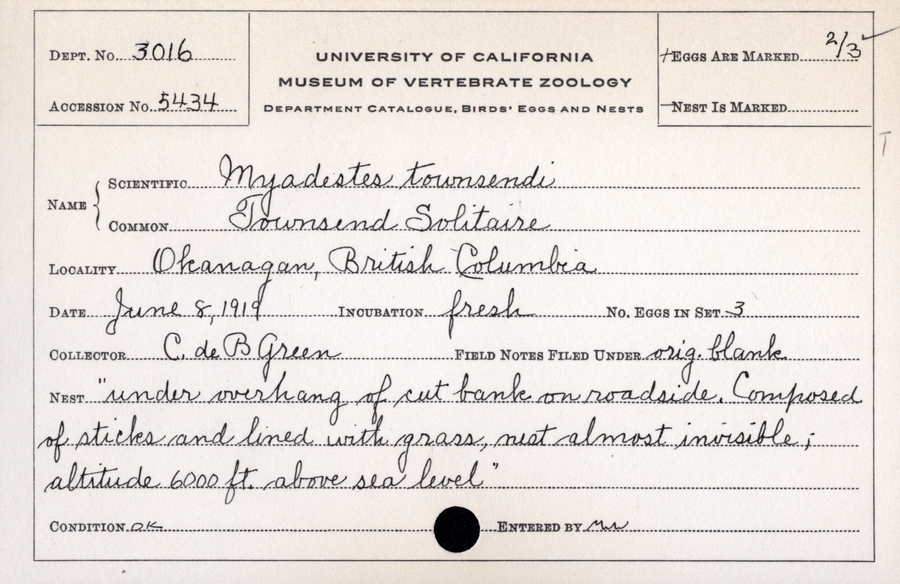 DEPT. No. 3016
ACCESSION No. 5434
UNIVERSITY OF CALIFORNIA
MUSEUM OF VERTEBRATE ZOOLOGY
DEPARTMENT CATALOGUE, BIRDS' EGGS AND NESTS
EGGS ARE MARKED 2/3
NEST IS MARKED
T
NAME
SCIENTIFIC Myadestes townsendi
COMMON Townsend Solitaire
LOCALITY Okanagan, British Columbia
DATE June 8, 1919 INCUBATION fresh No. EGGS IN SET 3
COLLECTOR C. de B Green FIELD NOTES FILED UNDER orig. blank
NEST "under overhang of cut bank on roadside. Composed
of sticks and lined with grass, nest almost invisible;
altitude 6000 ft. above sea level"
CONDITION OK ENTERED BY